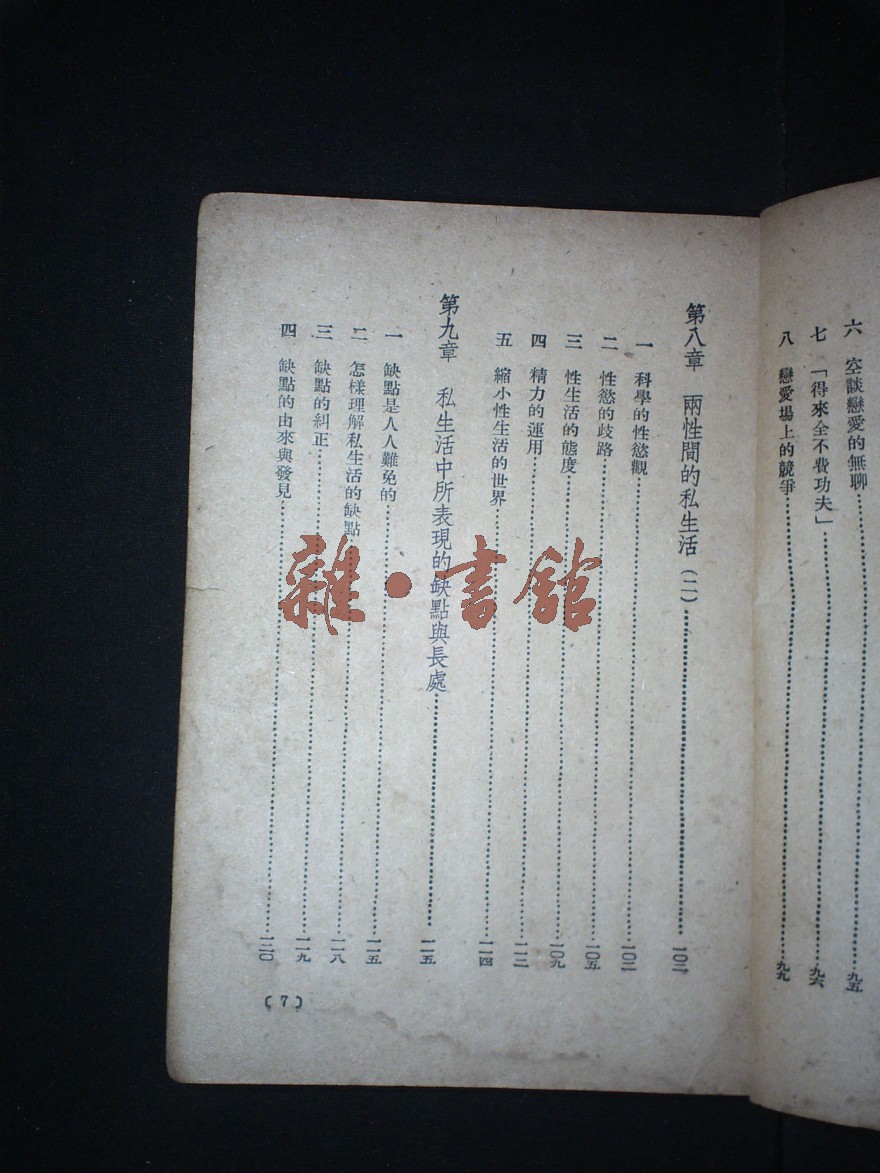 六 空談戀愛的無聊……九五
七 「得來全不費功夫」……九六
八 戀愛場上的競爭……九九
第八章 兩性間的私生活(二)……一〇二
一 科學的性慾觀……一〇二
二 性慾的歧路……一〇五
三 性生活的態度……一〇九
四 精力的運用……一一二
五 縮小性生活的世界……一一四
第九章 私生活中所表現的缺點與長處……一一五
一 缺點是人人難免的……一一五
二 怎樣理解私生活的缺點……一一八
三 缺點的糾正……一一九
四 缺點的由來與發見……一二〇
(7)
雜·書館